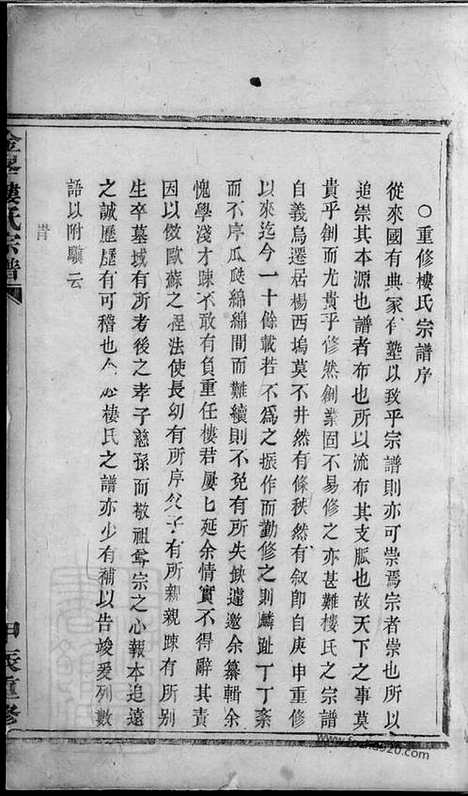 ○重修樓氏宗譜序
從來國有典家有塾以致乎宗譜則亦可崇焉宗者崇也所以
追崇其本源也譜者布也所以流布其支脈也故天下之事莫
貴乎創而尤貴乎修然創業固不易修之亦甚難樓氏之宗譜
自義烏遷居楊西塢莫不井然有條秩然有叙卽自庚申重修
以來迄今一十餘載若不為之振作而勤修之則麟趾丁丁系
而不序瓜瓞綿綿間而難續則不免有所失缺遽邀余纂輯余
愧學淺才疎不敢有負重任樓君屢匕延余情實不得辭其責
因以倣歐蘇之程法使長幼有所序父子有所親親疎有所别
生卒墓域有所考後之孝子慈孫而敬祖尊宗之心報本追遠
之誠歷歷有可稽也 樓氏之譜亦少有補以告竣爰列數
語以附驥云
樓氏宗譜
甲辰重修
www.foundin20.com